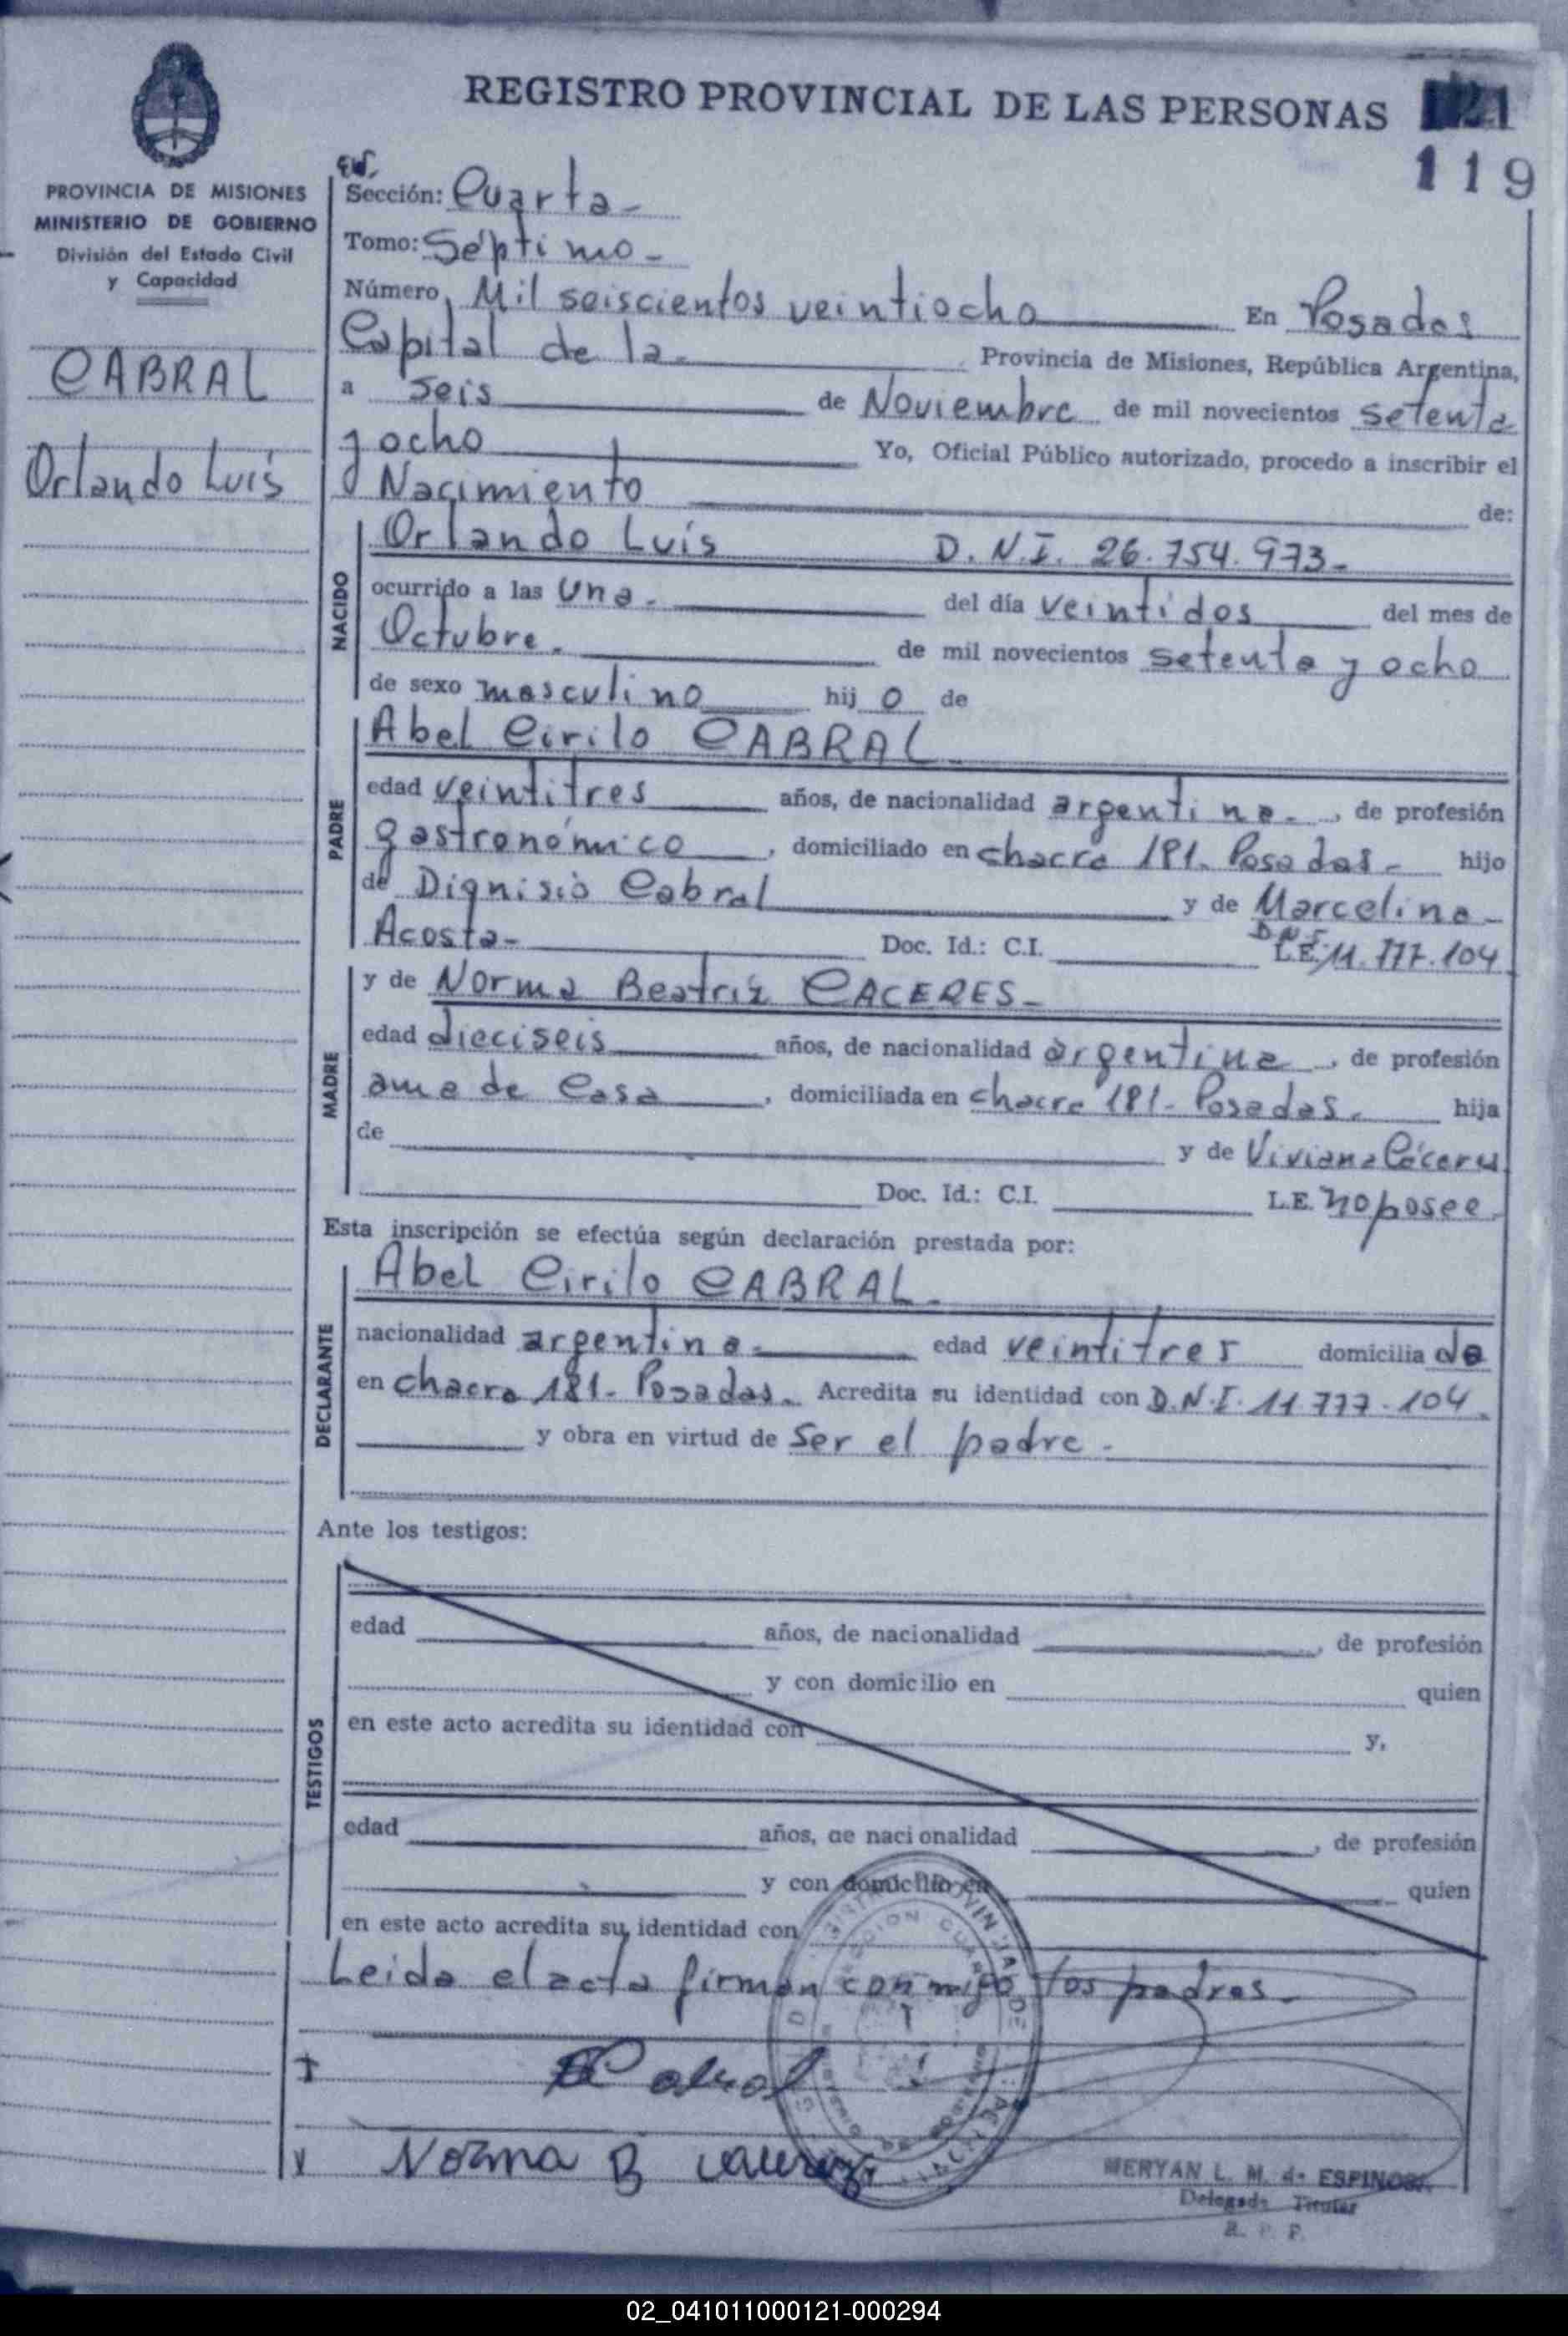 REGISTRO PROVINCIAL DE LAS PERSONAS 121
119
PROVINCIA DE MISIONES
MINISTERIO DE GOBIERNO
División del Estado Civil
y Capacidad
CABRAL
Orlando Luis
Sección: Cuarta-
Tomo: Séptimo-
Número Mil seiscientos veintiocho En Posadas
Capital de la. Provincia de Misiones, República Argentina,
a seis de Noviembre de mil novecientos setenta
y ocho Yo, Oficial Público autorizado, procedo a inscribir el
Nacimiento de:
NACIDO
Orlando Luis D.N.I. 26.754.973-
ocurrido a las una. del día veintidos del mes de
Octubre. de mil novecientos setenta y ocho
de sexo masculino hij o de
PADRE
Abel Cirilo CABRAL-
edad veintitres años, de nacionalidad argentina., de profesión
gastronómico, domiciliado en chacra 181-Posadas- hijo
de Dignisio Cabral y de Marcelina-
Acosta- Doc. Id.: C.I. D.N.I. L.E. 11.777.104
MADRE
y de Norma Beatriz CACERES-
edad dieciseis años, de nacionalidad argentina, de profesión
ama de casa, domiciliada en chacra 181-Posadas. hija
de y de Viviana Cáceres
Doc. Id.: C.I. L.E. no posee.
Esta inscripción se efectúa según declaración prestada por:
DECLARANTE
Abel Cirilo CABRAL-
nacionalidad argentina- edad veintitres domicilia do
en chacra 181-Posadas. Acredita su identidad con D.N.I. 11.777.104.
y obra en virtud de ser el padre.
Ante los testigos:
TESTIGOS
edad años, de nacionalidad , de profesión
y con domicilio en quien
en este acto acredita su identidad con y,
edad años, de nacionalidad , de profesión
y con domicilio en quien
en este acto acredita su identidad con
Leida el acta firman conmigo los padres-
Cabral
Norma B
MERYAN L. M. de ESPINOSA
Delegada Titular
R. P. P.
02_041011000121-000294